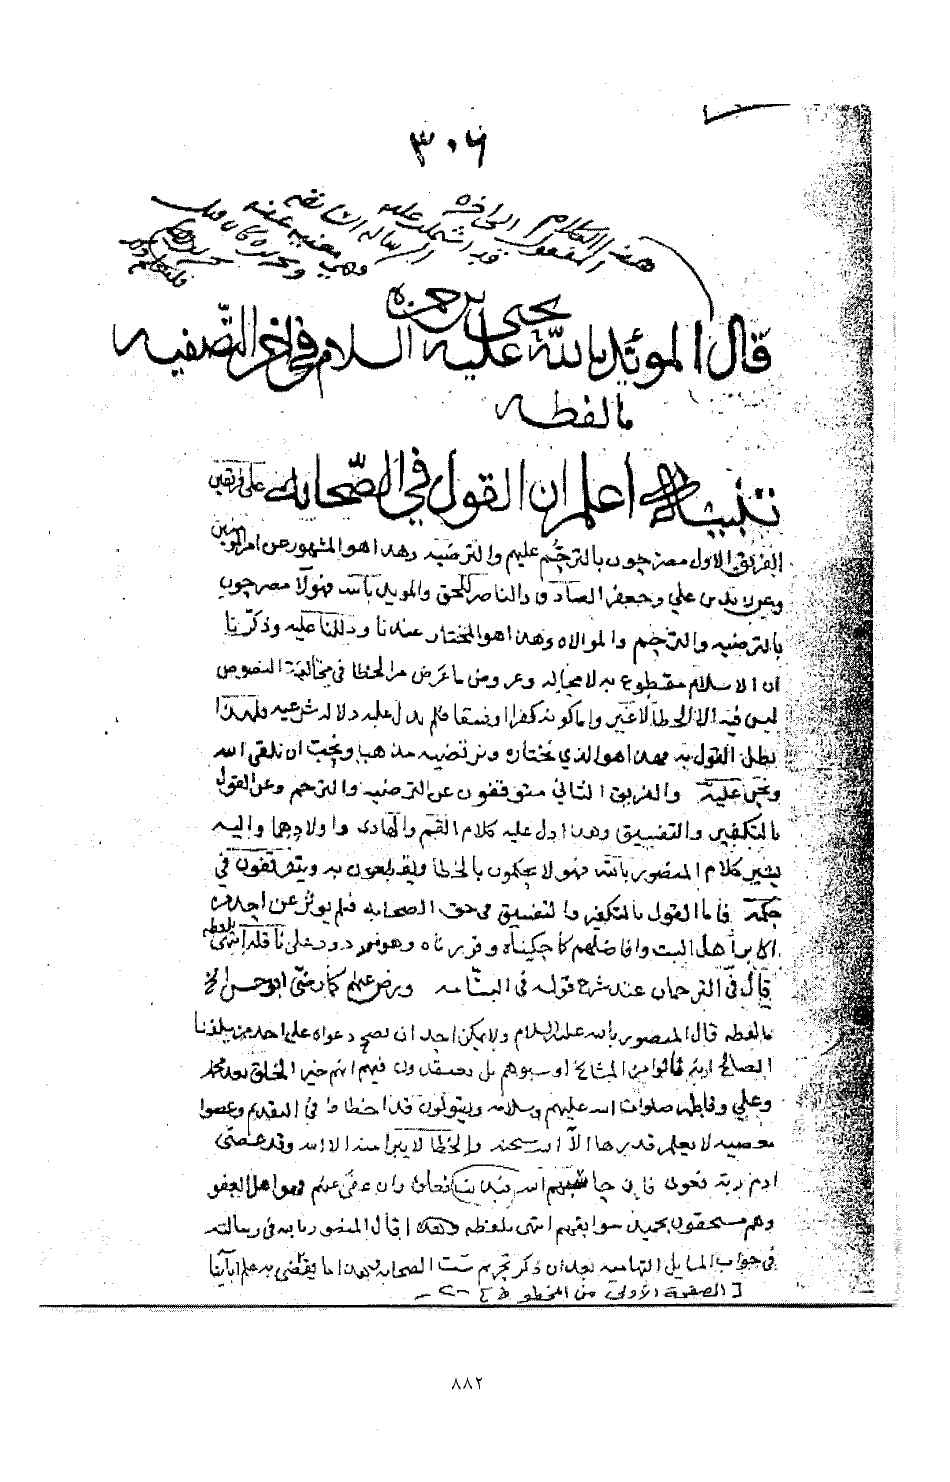 ٣٠٦
هذا الكلام الى اخره
المنقول قد اشتملت عليه
الرساله
وهي مغنيه عنه
يحيى بن حمزه
قال الموئد بالله عليه السلام في اخر التصفيه
مالفظه
تنبيه اعلم ان القول في الصحابه على فريقين
الفريق الاول مصرحون بالترحم عليهم والترضيه وهذا هو المشهور عن امير المومنين
وعن زيد بن علي وجعفر الصادق والناصر للحق والمويد بالله فهولا مصرحون
بالترضيه والترحم والموالاه وهذا هو المختار عندنا ودللنا عليه وذكرنا
ان الاسلام مقطوع به لا محاله وعروض ما عرض من الخطا في مخالفة النصوص
ليس فيه الا الخطا لا غير واما كونه كفرا او فسقا فلم يدل عليه دلاله شرعيه فلهذا
بطل القول به فهذا هو الذي نختاره ونرتضيه مذهبا ونحب ان نلقى الله
ونحن عليه والفريق الثاني متوقفون عن الترضيه والترحم وعن القول
بالتكفير والتفسيق وهذا دل عليه كلام القسم والهادي واولادهما واليه
يشير كلام المنصور بالله فهولا يحكمون بالخطا ويقطعون به ويتوقفون في
حكمه فاما القول بالتكفير والتفسيق في حق الصحابه فلم يوثر عن احد من
اكابر اهل البيت وافاضلهم كما حكيناه وقررناه وهو مردود على ناقله انتهى بلفظه
قال في الترجمان عند شرح قوله في البسامه ورض عنهم كما رضى ابو حسن الخ
مالفظه قال المنصور بالله عليه السلام ولا يمكن احد ان تصح دعواه على احد من سلفنا
الصالح انهم نالوا من المشايخ او سبوهم بل يعتقدون فيهم انهم خير الخلق بعد محمد
وعلي وفاطمه صلوات الله عليهم وسلامه ويقولون قد اخطاوا في التقديم وعصوا
معصيه لا يعلم قدرها الا الله سبحنه والخطا لا يبرا منه الا الله وقد عصى
ادم ربه فغوى فان حاسبهم الله فبذنب فعلوه وان عفى عنهم فهو اهل العفو
وهم مستحقون بحميد سوابقهم انتهى بلفظه وهكذا قال المنصور بالله في رسالته
في جواب المسايل التهاميه بعد ان ذكر تحريم سب الصحابه فهذا ما يقتضي به علم ابآئنا
[ الصفحة الأولى من المخطوط
٨٨٢